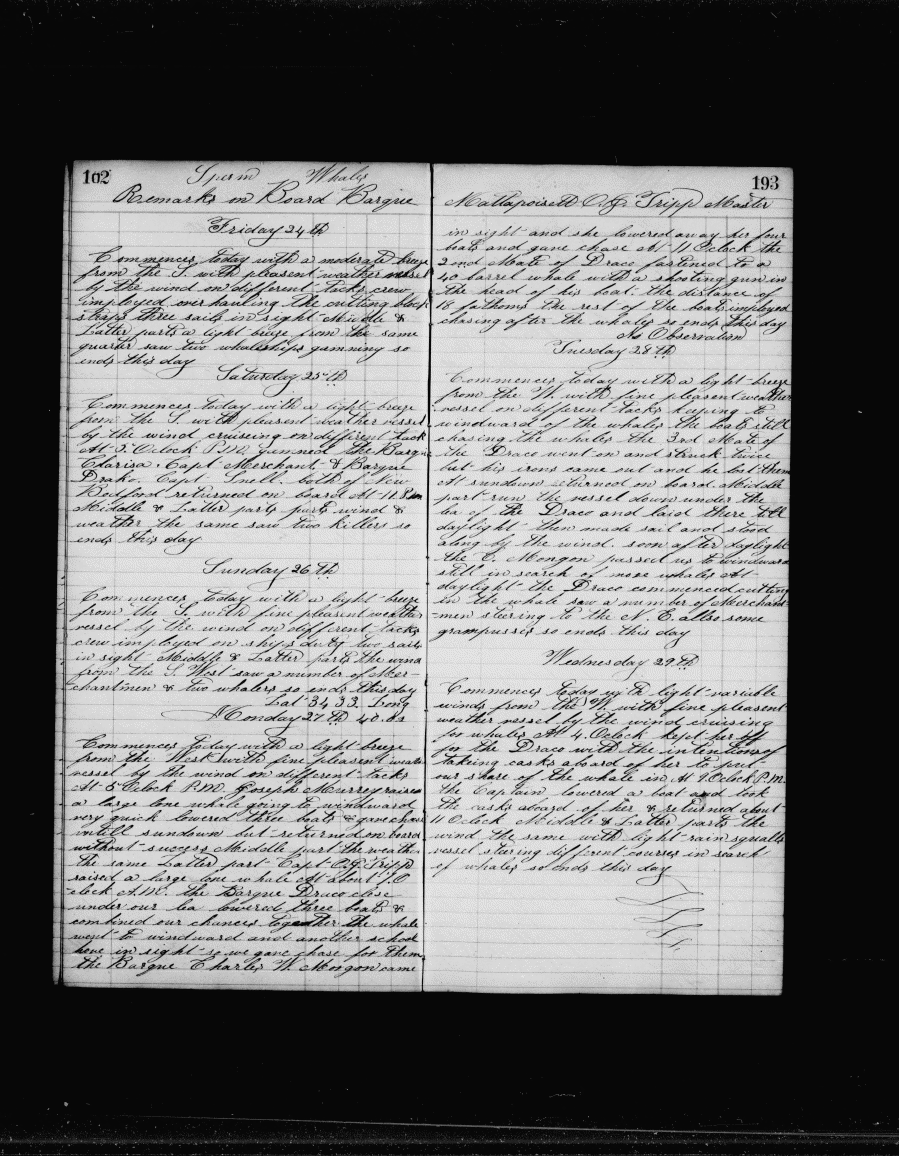 102
Sperm Whales
Remarks on Board Barque
Friday 24th
Commences today with a moderate breeze
from the S. with pleasent weather vessel
by the wind on different tacks crew
imployed overhauling the cutting block
straps three sails in sight Middle &
Latter parts a light breeze from the same
quarter saw two whaleships gamming so
ends this day
Saturday 25th
Commences today with a light breeze
from the S. with pleasent weather vessel
by the wind cruising on different tack
At 5. Oclock P.M. gammed the Barque
Clarisa. Capt Merchant & Barque
Drako. Capt Snell. both of New
Bedford returned on board At 11. P.M
Middle & Latter parts wind &
weather the same saw two killers so
ends this day
Sunday 26th
Commences today with a light breeze
from the S. with fine pleasent weather
vessel by the wind on different tacks
crew imployed on ships duty two sails
in sight Middle & Latter parts the wind
from the S. West saw a number of Mer
chantmen & two whalers so ends this day
Lat 34 33 Long
Monday 27th 40.02
Commences today with a light breeze
from the West with fine pleasent weather
vessel by the wind on different tacks
At 5 Oclock P.M. Joseph Murrey raised
a large lone whale going to windward
very quick lowered three boats & gave chase
intill sundown but returned on board
without success Middle part the weather
the same Latter part Capt O.G. Tripp
raised a large lone whale At about 10
clock A.M. the Barque Draco close
under our lea lowered three boats &
combined our chances together the whale
went to windward and another school
hove in sight so we gave chase for them
the Barque Charles W. Morgon came
193
Mattapoisett O.G. Tripp Master
in sight and she lowered away her four
boats and gave chase At 11 Oclock the
2nd Mate of Draco fastened to a
40 barrel whale with a shooting gun in
the head of his boat the distance of
18 fathoms the rest of the boats imployed
chasing after the whales so ends this day
No Observation
Tuesday 28th
Commences today with a light breeze
from the W. with fine pleasent weather
vessel on different tacks keeping to
windward of the whales the boats still
chasing the whales the 3rd Mate of
the Draco went on and struck twice
but his irons came out and he lost them
At sundown returned on board Middle
part run the vessel down under the
lea of the Draco and laid there till
daylight then made sail and stood
along by the wind. soon after daylight
the C. Morgon passed us to windward
still in search of more whales At
daylight the Draco commenced cutting
in the whale saw a number of Merchant
men steering to the N. E. allso some
grampusses so ends this day
Wednesday 29th
Commences today with light variable
winds from the W. with fine pleasent
weather vessel by the wind cruising
for whales At 4. Oclock kept her off
for the Draco with the intentions of
taking casks aboard of her to put
our share of the whale in At 9 Oclock P.M.
the Captain lowered a boat and took
the casks aboard of her & returned about
11 Oclock Middle & Latter parts the
wind the same with light rain squalls
vessel steering different courses in search
of whales so ends this day